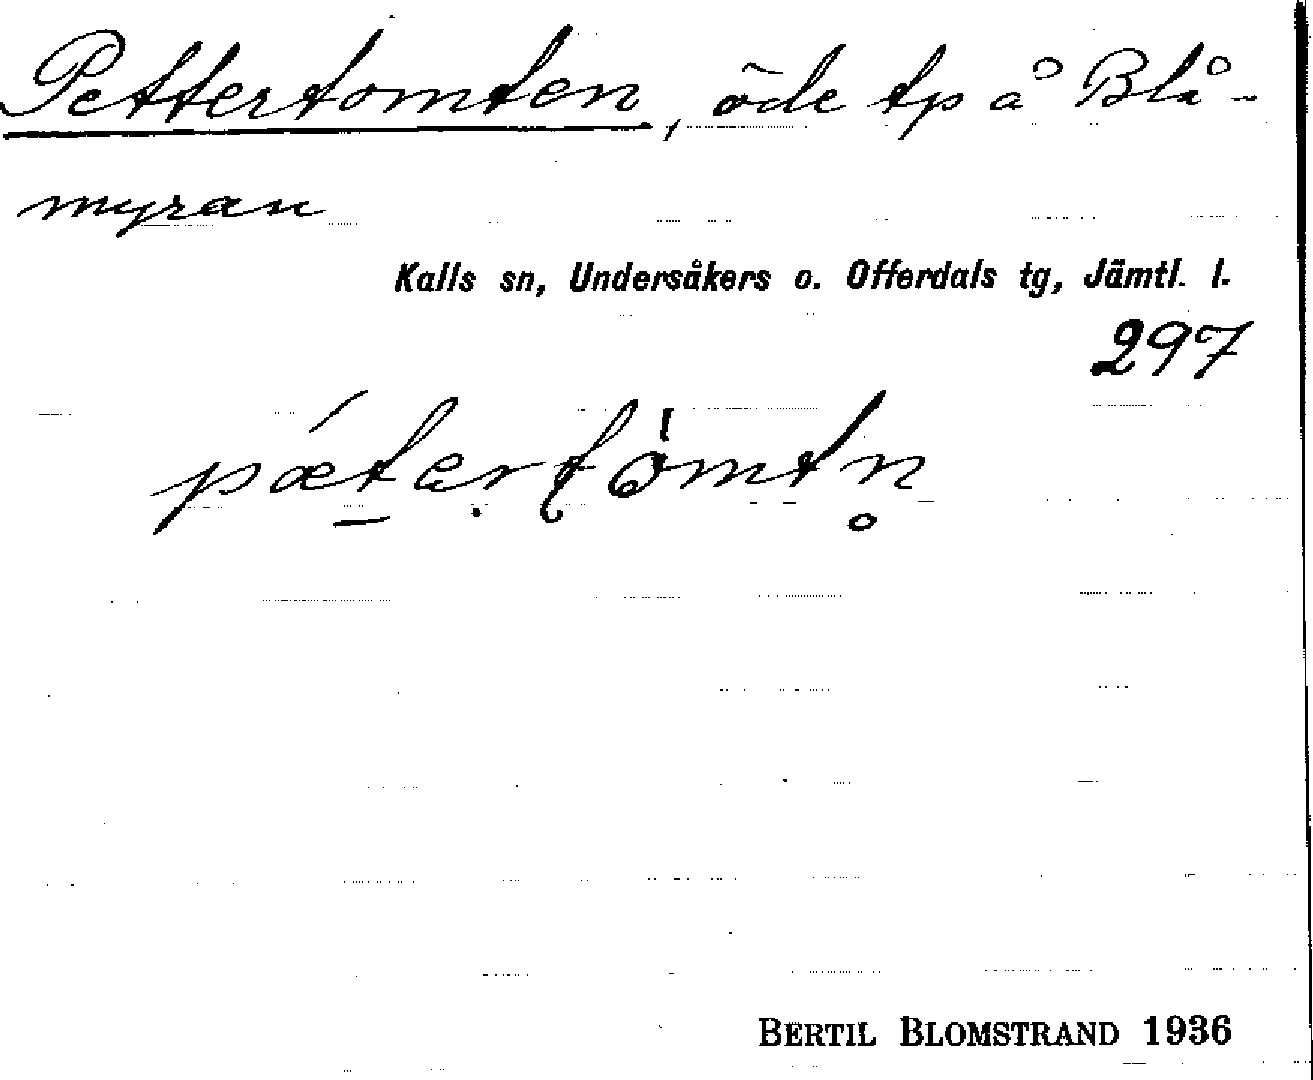 Pettertomten, öde tp å Blå-
myran
Kalls sn, Undersåkers o. Offerdals tg, Jämtl. l.
297
BERTIL BLOMSTRAND 1936